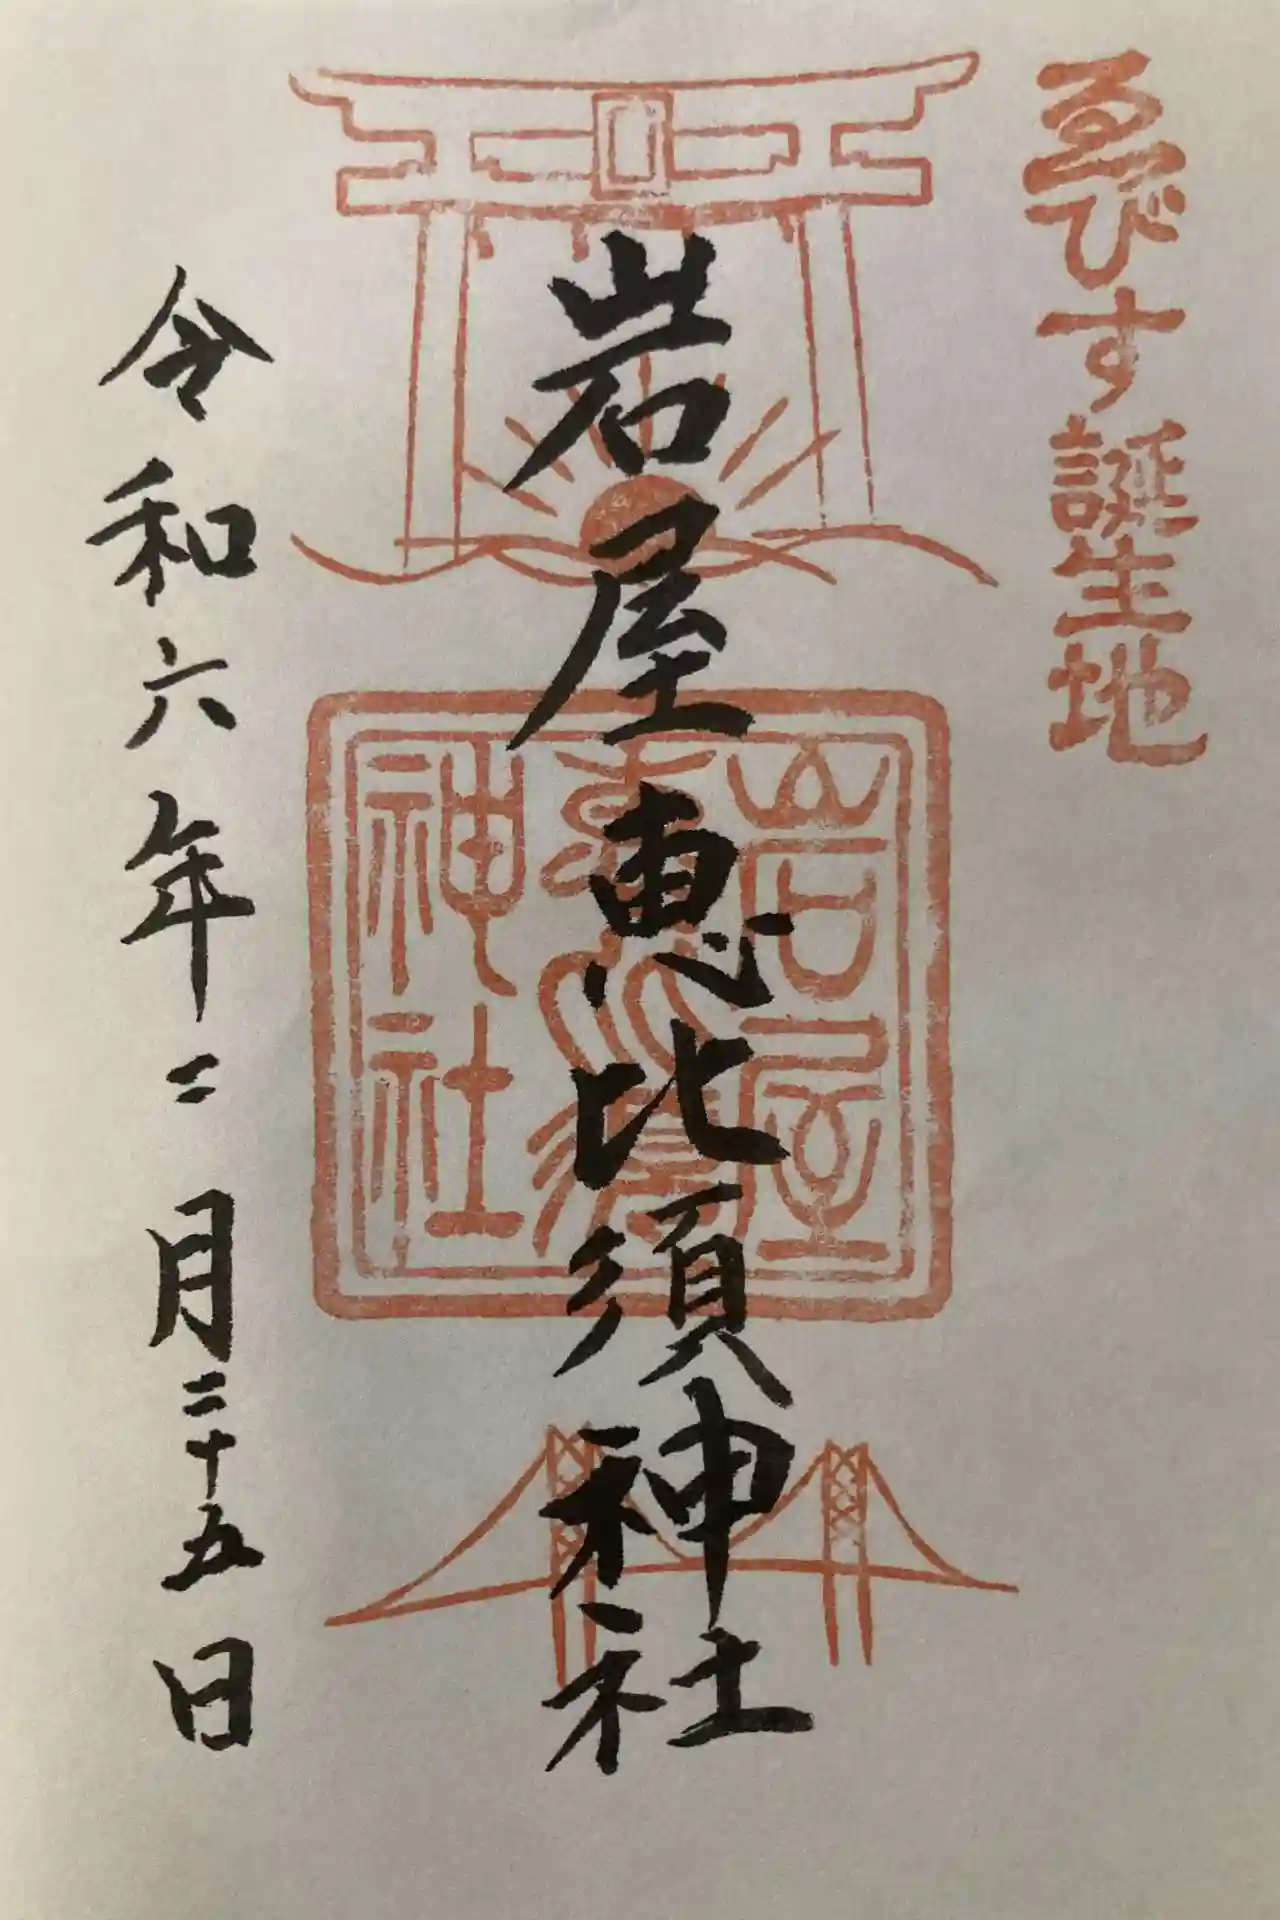 ゑびす誕生地
岩屋恵比須神社
岩屋
神社
令和六年二月二十五日